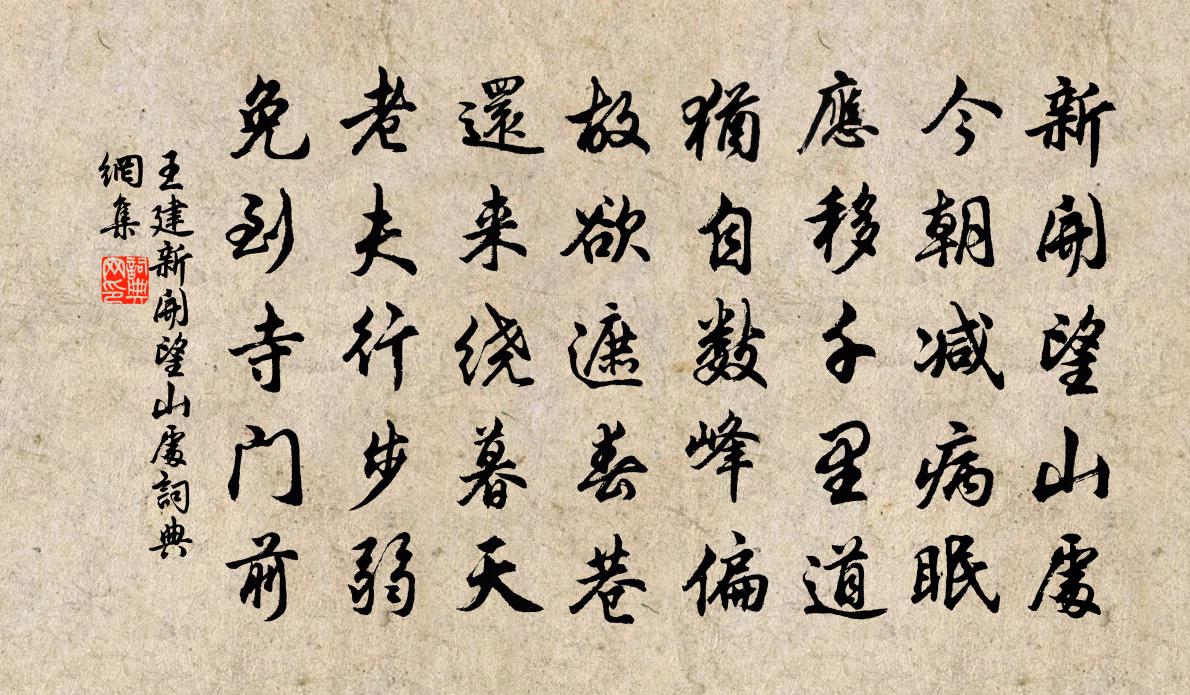 新開望山處
今朝减病眠
應移千里道
猶自數峰偏
故欲遮春巷
還来绕暮天
老夫行步弱
免到寺门前
王建新開望山處詞典
網集
詞典
网印